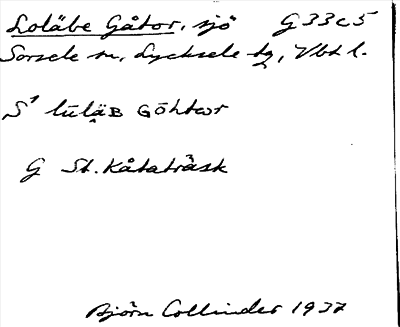 Loläbe Gåtor, sjö G33c5
Sorsele sn, Lycksele lg, Vbt l.
S¹ lūlä̭B Göhtwr
G St. Kåtaträsk
Björn Collinder 1937